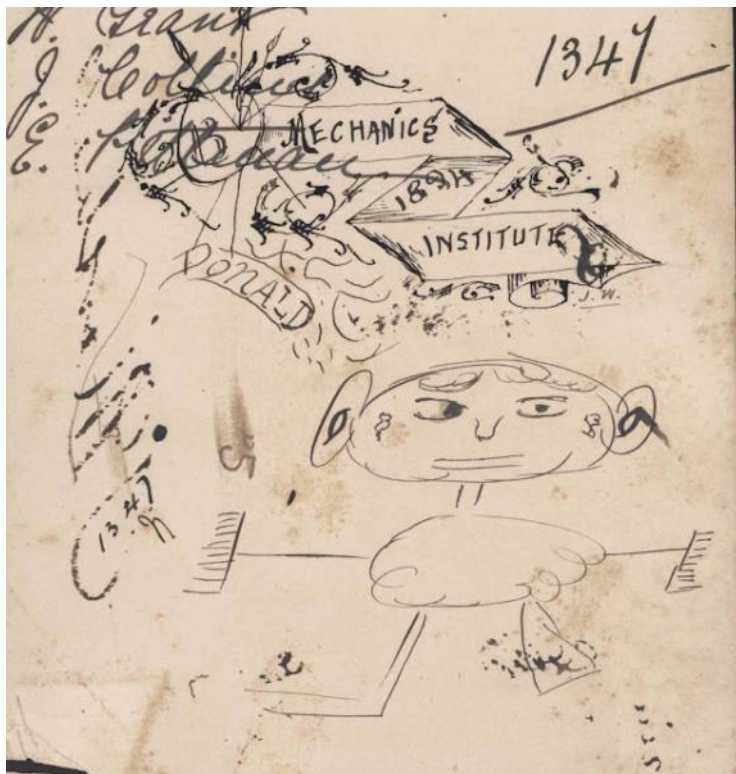 Grant
J.
E.
1347
MECHANICS
1894
INSTITUTE
DONALD
J. W.
1347